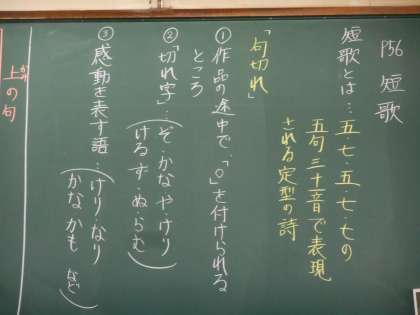 P56 短歌
短歌とは…五・七・五・七・七の
五句三十一音で表現
される定型の詩
「句切れ」
①作品の途中で、「。」を付けられる
ところ
②「切れ字」…ぞ・かな・や・けり
(ける・ず・ぬ・らむ)
③感動を表す語…(けり・なり
かな・かも など)
上の句
かみ